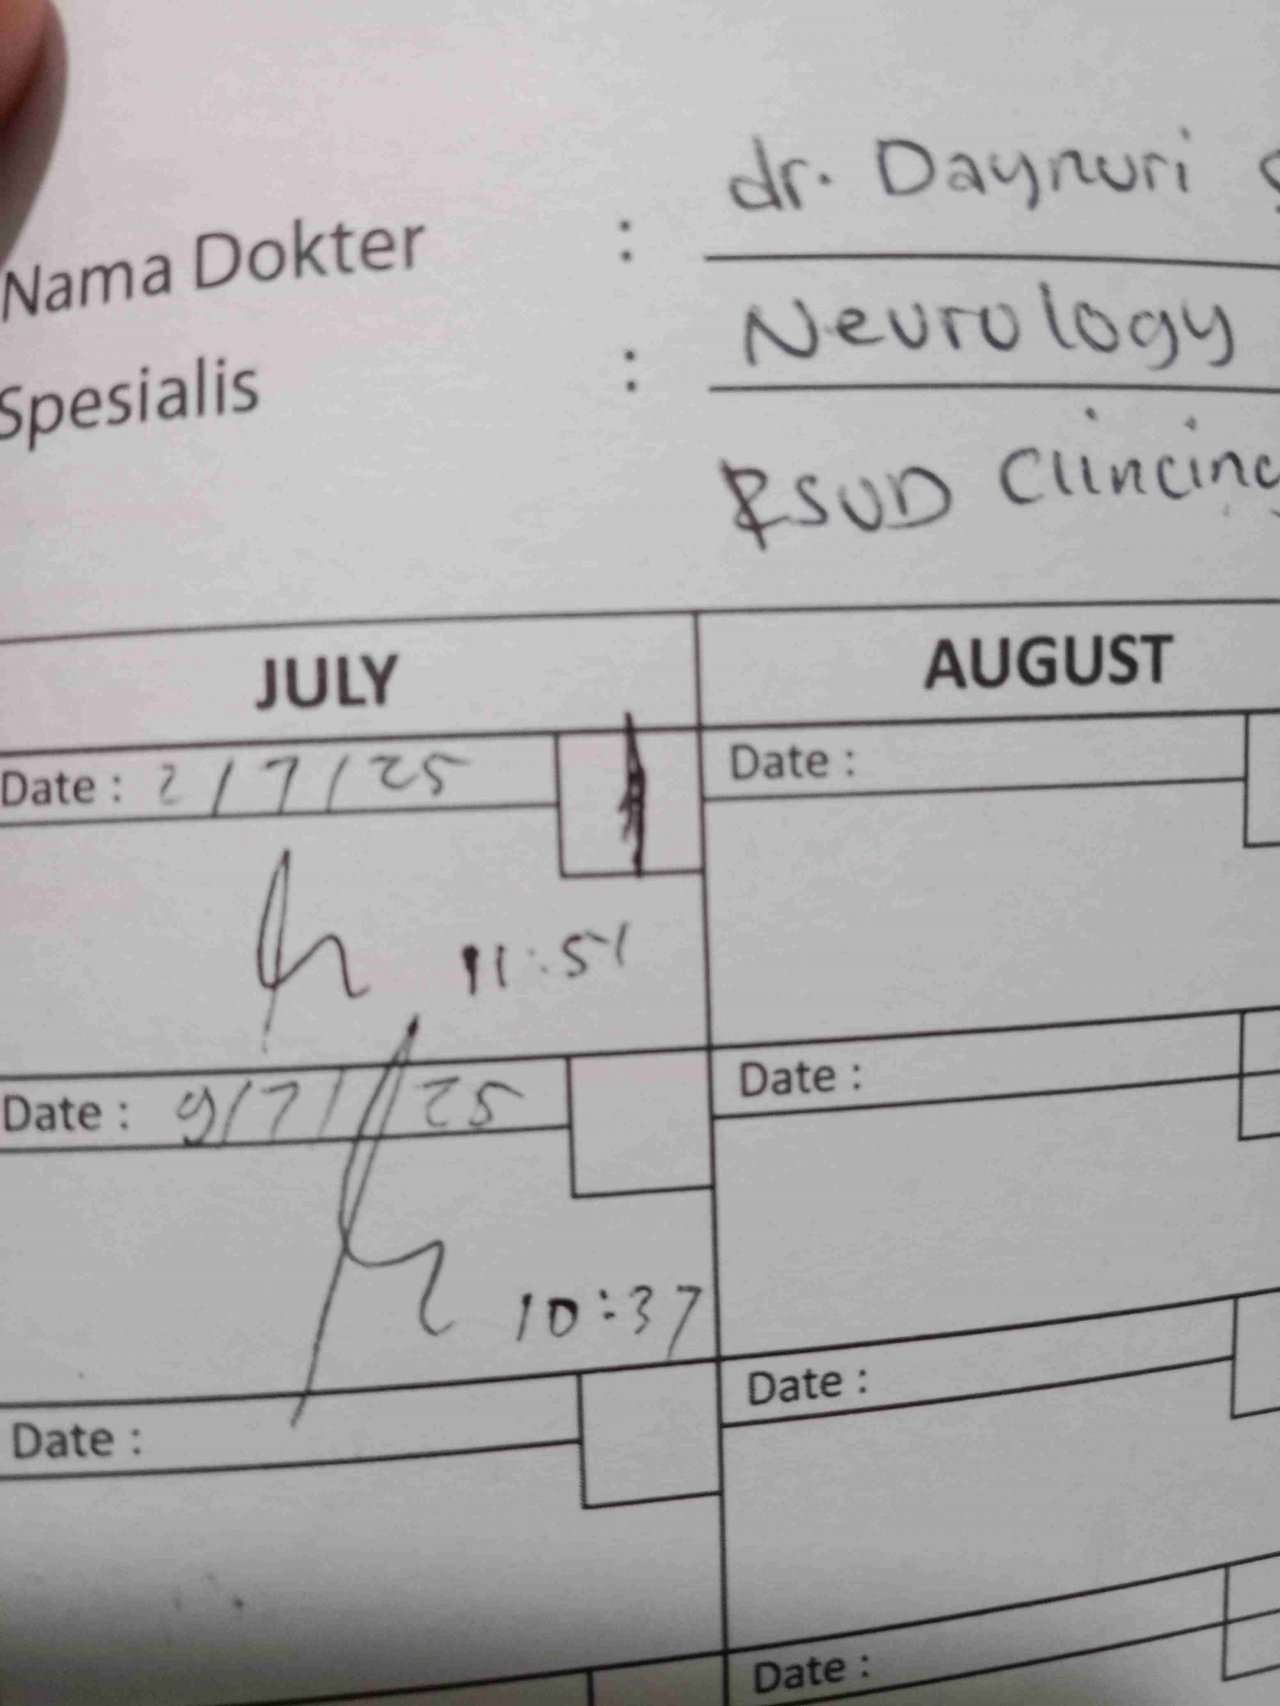 Nama Dokter : dr. Daynuri
Spesialis : Neurology
RSUD Clincing
JULY AUGUST
Date : 2/7/25 Date :
11:51
Date : 9/7/25 Date :
10:37
Date : Date :
Date :